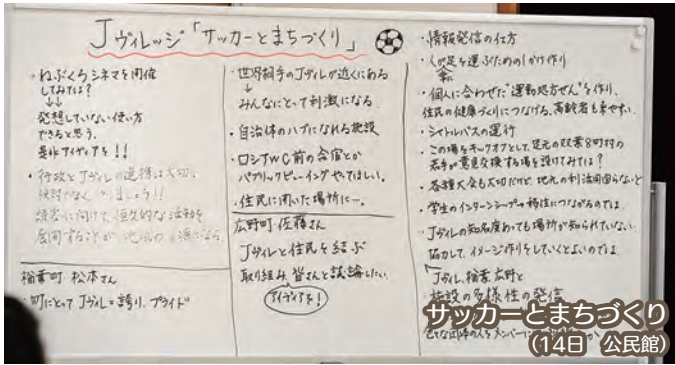 Jヴィレッジ「サッカーとまちづくり」
・ねぶくろシネマを開催
してみては？
↓↓
発想していない使い方
できると思う。
是非アイディアを！！
・行政とJヴィレの連携は大切。
展開することが
楢葉町 松本さん
・町にとってJヴィレ=誇り、プライド
・世界相手のJヴィレが近くにある
↓
みんなにとって刺激になる
・自治体のハブになれる施設
・ロシアWC前の合宿とか
パブリックビューイングやってほしい。
・住民に開いた場所に…。
広野町 佐藤さん
Jヴィレと住民を結ぶ
取り組み 皆さんと議論したい。
アイディアを！
・情報発信の仕方
・人が足を運ぶためのしかけ作り
・個人に合わせた"運動処方せん"を作り、
住民の健康づくりにつなげる。高齢者も来やすい。
・シャトルバスの運行
・この場をキックオフとして、足元の双葉8町村の
若手が意見交換する場を設けてみては？
・各種大会も大切だけど、地元の利活用図らないと
・学生のインターンシップ→移住につながるのでは。
・Jヴィレの知名度あっても場所が知られていない。
協力して、イメージ作りをしていくとよいのでは。
「Jヴィレ、楢葉、広野と
施設の多様性の発信
サッカーとまちづくり
（14日　公民館）